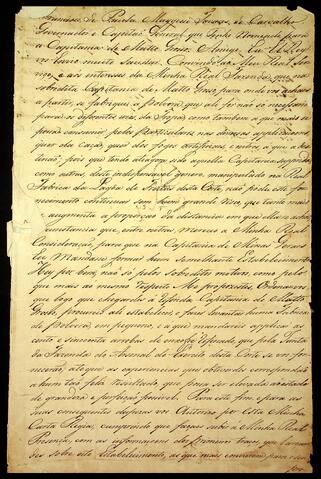 Francisco de Paula Maggessi Tavares de Carvalho
Governador e Capitão General que tenho Nomeado para
a Capitania de Matto Grosso. Amigo. Eu El Rey
vos Envio muito Saudar. Convindo ao Meu Real Ser-
viço, e aos interesses da Minha Real Fazenda, que na
sobredita Capitania de Matto Grosso para onde
a partir, se fabrique a Polvora que ali for não só necessaria
para os differentes usos da Tropa como tambem a que mais se
possa consumir pelos Particulares nas diversas applicações
quer da caça, quer dos fogos artificiaes, e outras, a que a
pois que tendo até agora sido aquella Capitania supprida
como outras deste indispensavel genero, manipulado na Real
Fabrica da Lagôa de Freitas desta Corte, não podia este for-
necimento continuar sem hum grande risco, que tanto mais
augmenta á proporção da distancia em que ella se acha
cunstancia que, entre outras, Mereceu a Minha Real
Consideração, para que na Capitania de Minas Geraes
Eu Mandasse formar hum semelhante Estabelecimento:
Hey por bem, não só pelos sobreditos motivos, como pelo
que mais ao mesmo respeito Me foi presente, Ordenar-vos
que logo que chegardes á referida Capitania de Matto
Grosso, procureis ali estabelecer, e fazer levantar huma Fabrica
de Polvora, em pequeno, e a que mandareis applicar as
cento e sincoenta arrobas de enxofre refinado, que pela Junta
da Fazenda do Arsenal do Exercito desta Corte se vos for-
necerão, até que as experiencias que obtiverdes correspondão
a hum tão feliz resultado que possa ser elevada a estado
de grandeza e perfeição possivel. Para este fim, e para as
mais consequentes despezas vos Authorizo por esta Minha
Carta Regia, cumprindo que façaes subir á Minha Real
Presença, com as informaçoens do primeiro
des sobre este Estabelecimento, as que mais convierem para o seu
pro-